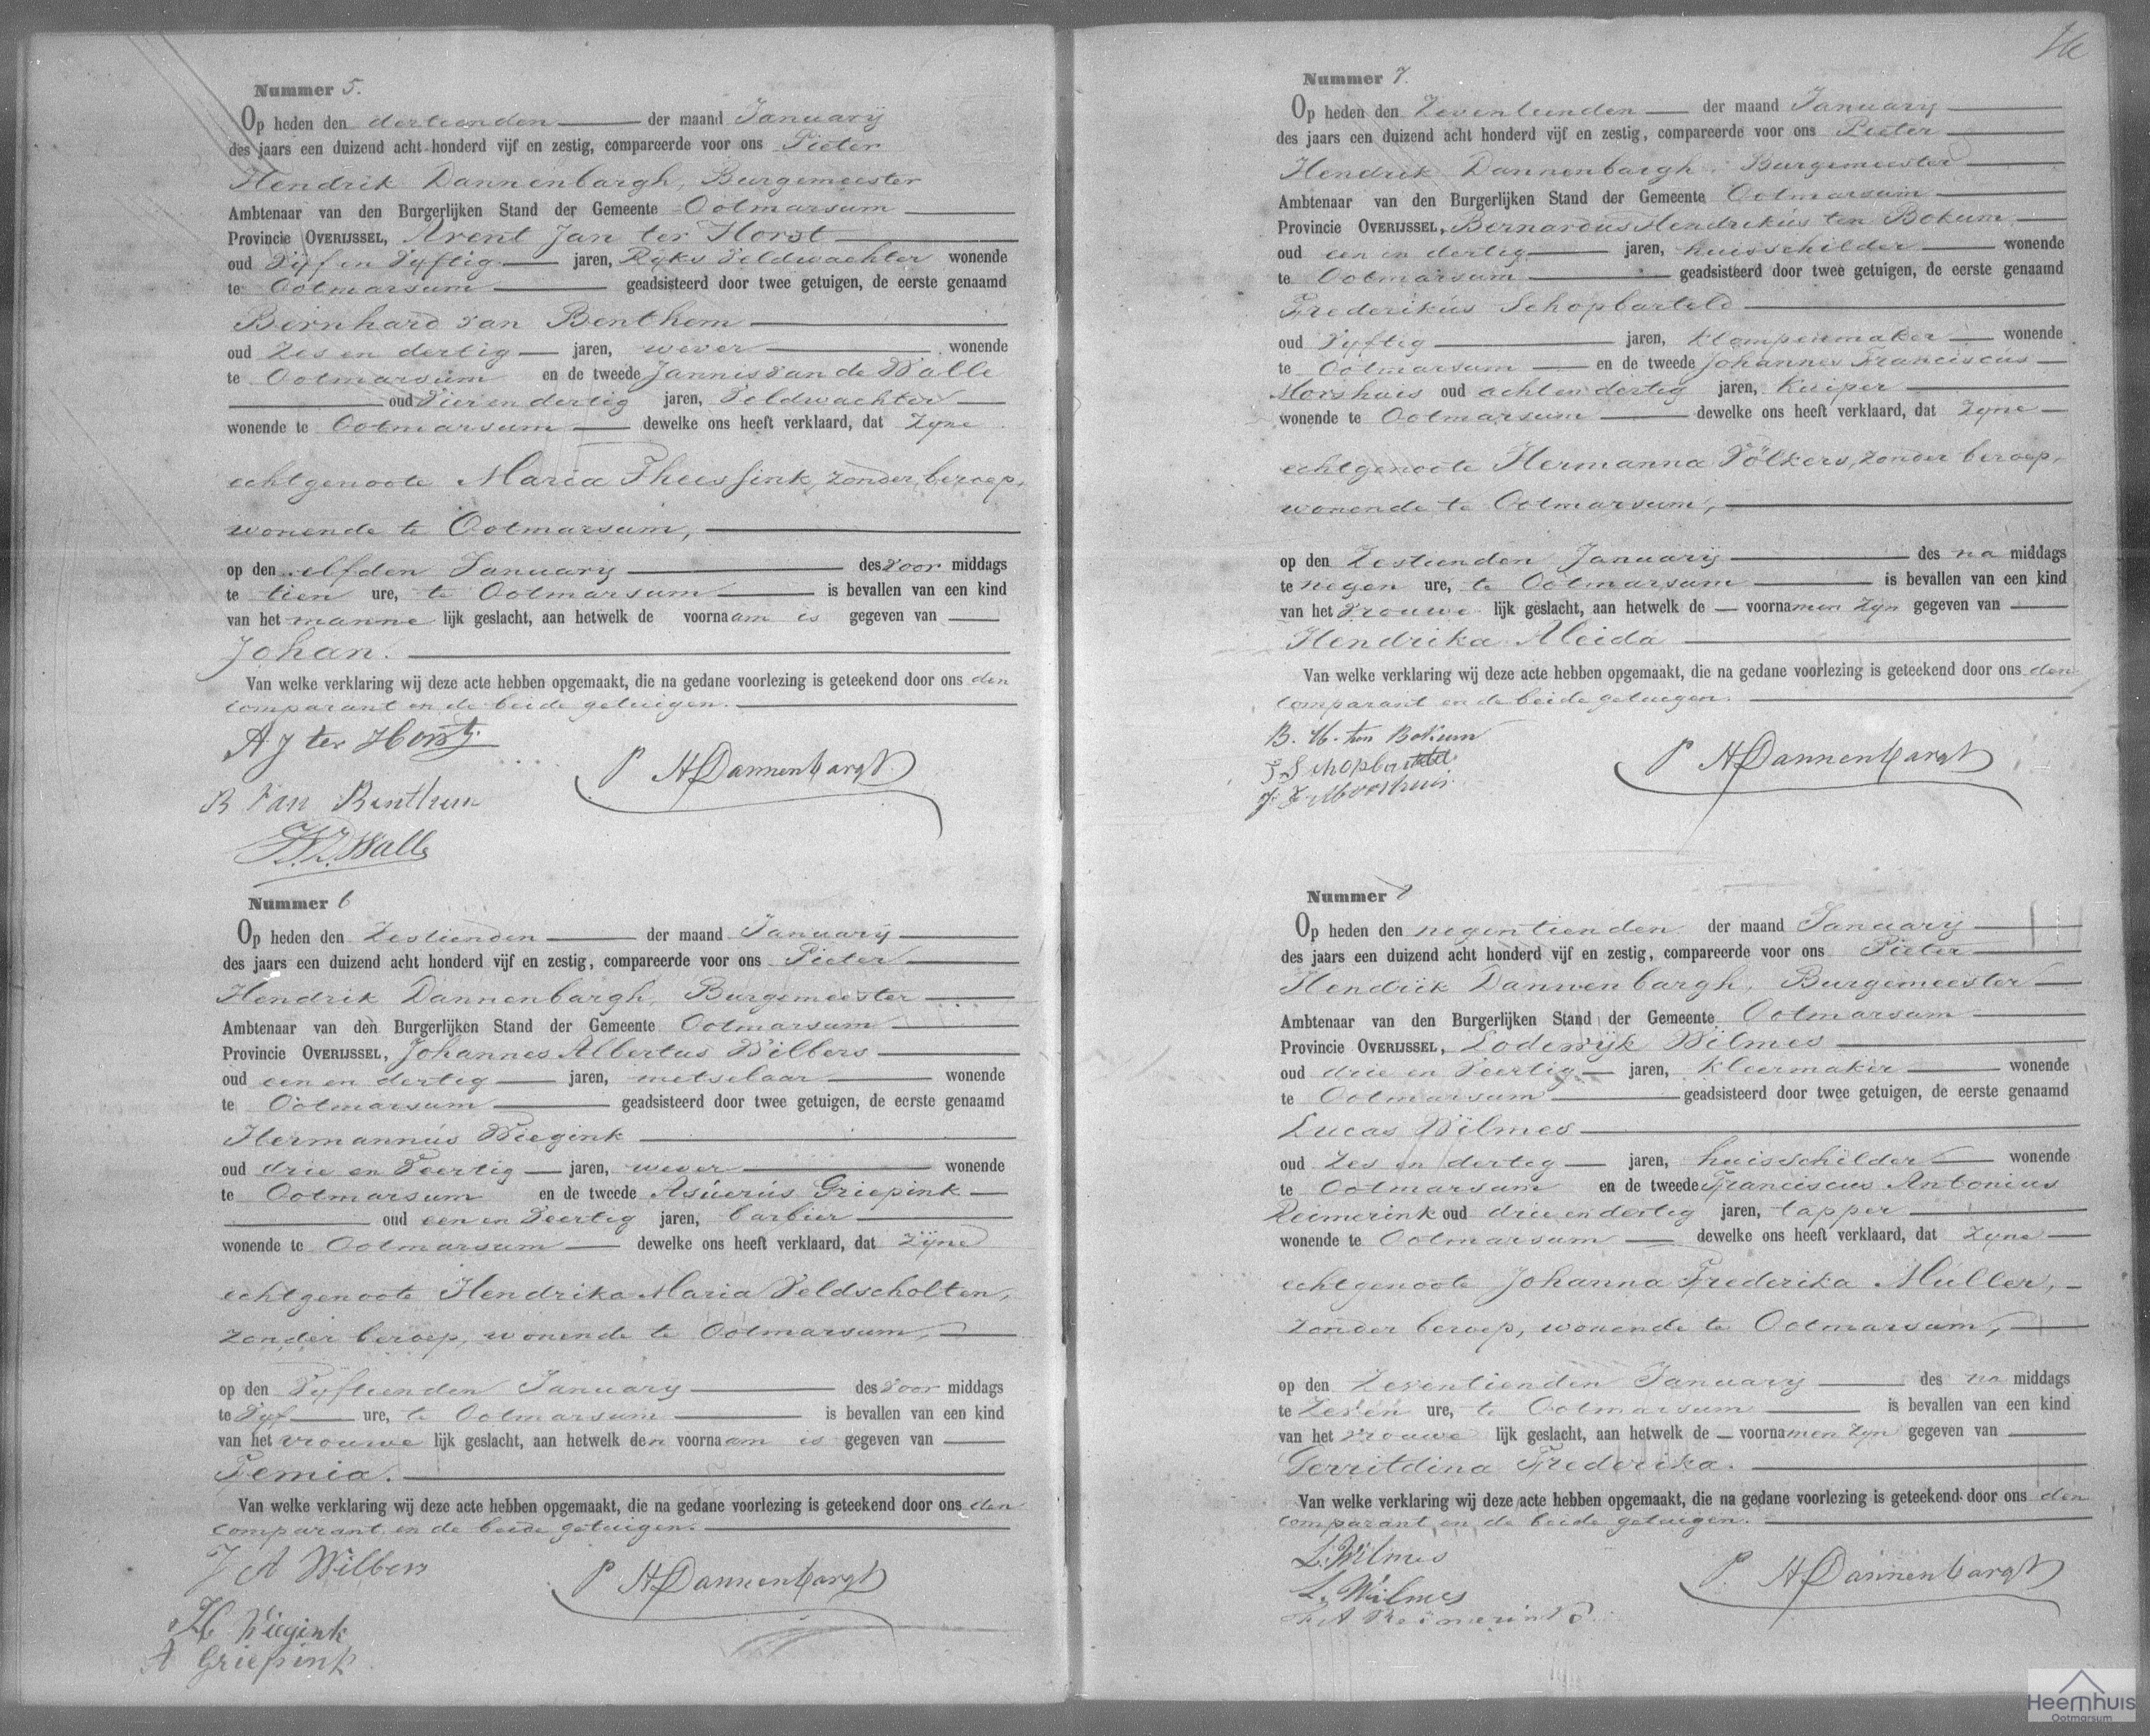 Nummer 5.
Op heden den dertienden der maand Januarij
des jaars een duizend acht honderd vijf en zestig, compareerde voor ons Pieter
Hendrik Dannenbargh, Burgemeester
Ambtenaar van den Burgerlijken Stand der Gemeente Ootmarsum
Provincie OVERIJSSEL, Arent Jan ter Horst
oud Vijf en Vijftig jaren, Rijks Veldwachter wonende
te Ootmarsum geadsisteerd door twee getuigen, de eerste genaamd
Bernhard van Benthem
oud zes en dertig jaren, wever wonende
te Ootmarsum en de tweede Jannis van de Walle
oud Vier en dertig jaren, Veldwachter
wonende te Ootmarsum dewelke ons heeft verklaard, dat zijne
echtgenoote Maria Theussink, zonder beroep,
wonende te Ootmarsum,
op den elfden Januarij des voor middags
te tien ure, te Ootmarsum is bevallen van een kind
van het manne lijk geslacht, aan hetwelk de voornaam is gegeven van
Johan.
Van welke verklaring wij deze acte hebben opgemaakt, die na gedane voorlezing is geteekend door ons den
comparant en de beide getuigen.
A J ter Horst
P H Dannenbargh
B van Benthem
V. D. Walle
Nummer 6
Op heden den Zestienden der maand Januarij
des jaars een duizend acht honderd vijf en zestig, compareerde voor ons Pieter
Hendrik Dannenbargh, Burgemeester
Ambtenaar van den Burgerlijken Stand der Gemeente Ootmarsum
Provincie OVERIJSSEL, Johannes Albertus Wilbers
oud een en dertig jaren, metselaar wonende
te Ootmarsum geadsisteerd door twee getuigen, de eerste genaamd
Hermannús Wiegink
oud drie en Veertig jaren, wever wonende
te Ootmarsum en de tweede Asúerús Griepink
oud een en Veertig jaren, barbier
wonende te Ootmarsum dewelke ons heeft verklaard, dat zijne
echtgenoote Hendrika Maria Veldscholten,
zonder beroep, wonende te Ootmarsum,
op den Vijftienden Januarij des voor middags
te Vijf ure, te Ootmarsum is bevallen van een kind
van het vrouwe lijk geslacht, aan hetwelk den voornaam is gegeven van
Femia.
Van welke verklaring wij deze acte hebben opgemaakt, die na gedane voorlezing is geteekend door ons den
comparant en de beide getuigen.
J A Wilbers
P H Dannenbargh
H Wiegink
A Griepink
Nummer 7.
Op heden den Zeventienden der maand Januarij
des jaars een duizend acht honderd vijf en zestig, compareerde voor ons Pieter
Hendrik Dannenbargh, Burgemeester
Ambtenaar van den Burgerlijken Stand der Gemeente Ootmarsum
Provincie OVERIJSSEL, Bernardus Hendrikús ten Bokum
oud een en dertig jaren, huisschilder wonende
te Ootmarsum geadsisteerd door twee getuigen, de eerste genaamd
Frederikús Schopbarteld
oud Vijftig jaren, klompenmaker wonende
te Ootmarsum en de tweede Johannes Franciscus
Morshuis oud acht en dertig jaren, kuiper
wonende te Ootmarsum dewelke ons heeft verklaard, dat zijne
echtgenoote Hermanna Völkers, zonder beroep,
wonende te Ootmarsum,
op den Zestienden Januarij des na middags
te negen ure, te Ootmarsum is bevallen van een kind
van het Vrouwe lijk geslacht, aan hetwelk de voornamen zijn gegeven van
Hendrika Aleida
Van welke verklaring wij deze acte hebben opgemaakt, die na gedane voorlezing is geteekend door ons den
comparant en de beide getuigen.
B. H. ten Bokum
P H Dannenbargh
J F Morshuis
Nummer 8
Op heden den negentienden der maand Januarij
des jaars een duizend acht honderd vijf en zestig, compareerde voor ons Pieter
Hendrik Dannenbargh, Burgemeester
Ambtenaar van den Burgerlijken Stand der Gemeente Ootmarsum
Provincie OVERIJSSEL, Lodewijk Wilmes
oud drie en Veertig jaren, kleermaker wonende
te Ootmarsum geadsisteerd door twee getuigen, de eerste genaamd
Lucas Wilmes
oud zes en dertig jaren, huisschilder wonende
te Ootmarsum en de tweede Franciscus Antonius
Reimerink oud drie en dertig jaren, tapper
wonende te Ootmarsum dewelke ons heeft verklaard, dat zijne
echtgenoote Johanna Frederika Muller,
zonder beroep, wonende te Ootmarsum,
op den Zeventienden Januarij des na middags
te Zeven ure, te Ootmarsum is bevallen van een kind
van het vrouwe lijk geslacht, aan hetwelk de voornamen zijn gegeven van
Gerritdina Frederika.
Van welke verklaring wij deze acte hebben opgemaakt, die na gedane voorlezing is geteekend door ons den
comparant en de beide getuigen.
L. Wilmes
P. H Dannenbargh
L. Wilmes
F A Reimerink
Heemhuis
Ootmarsum